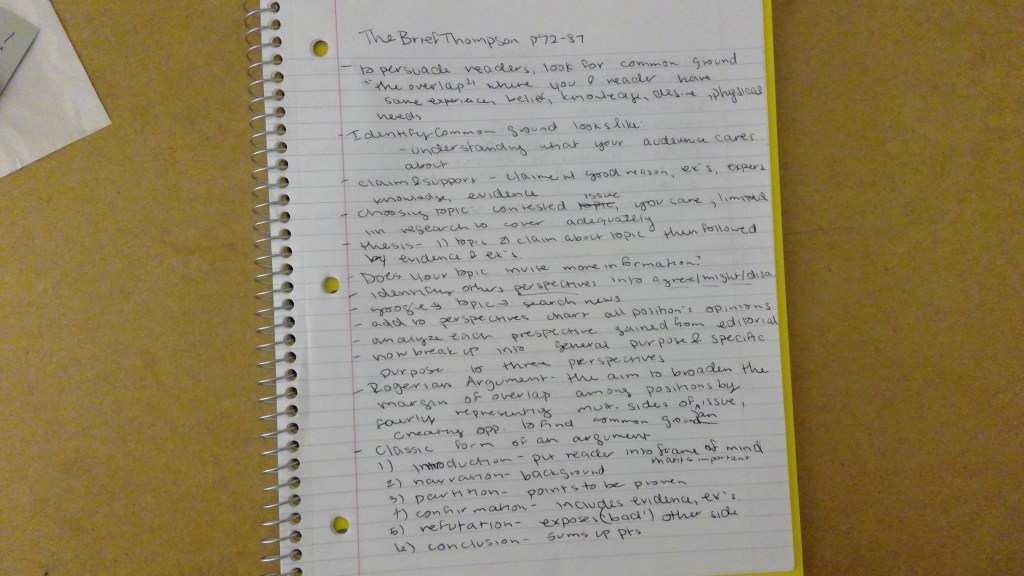 The Brief Thompson p72-87
- to persuade readers, look for common ground
"the overlap" where you & reader have
same experience, belief, knowledge, desire, physical
needs
- Identify Common ground looks like:
- understanding what your audience cares
about
- claim & support - claim w/ good reason, ex's, expert
knowledge, evidence
- choosing topic: contested topic issue, you care, limited
in research to cover adequately
- thesis - 1) topic 2) claim about topic then followed
by evidence & ex's
- Does your topic invite more information?
- identify others perspectives into agree/might/disa
- google → topic → search news
- add to perspectives chart all position's opinions
- analyze each prespective gained from editorial
- now break up into general purpose & specific
purpose to three perspectives
- Rogerian Argument - the aim to broaden the
margin of overlap among positions by
fairly representing mult. sides of an issue,
creating opp. to find common ground
- Classic form of an argument
1) introduction - put reader into frame of mind
2) narration - background that's important
3) partition - points to be proven
4) confirmation - includes evidence, ex's
5) refutation - exposes (bad') other side
6) conclusion - sums up pts.